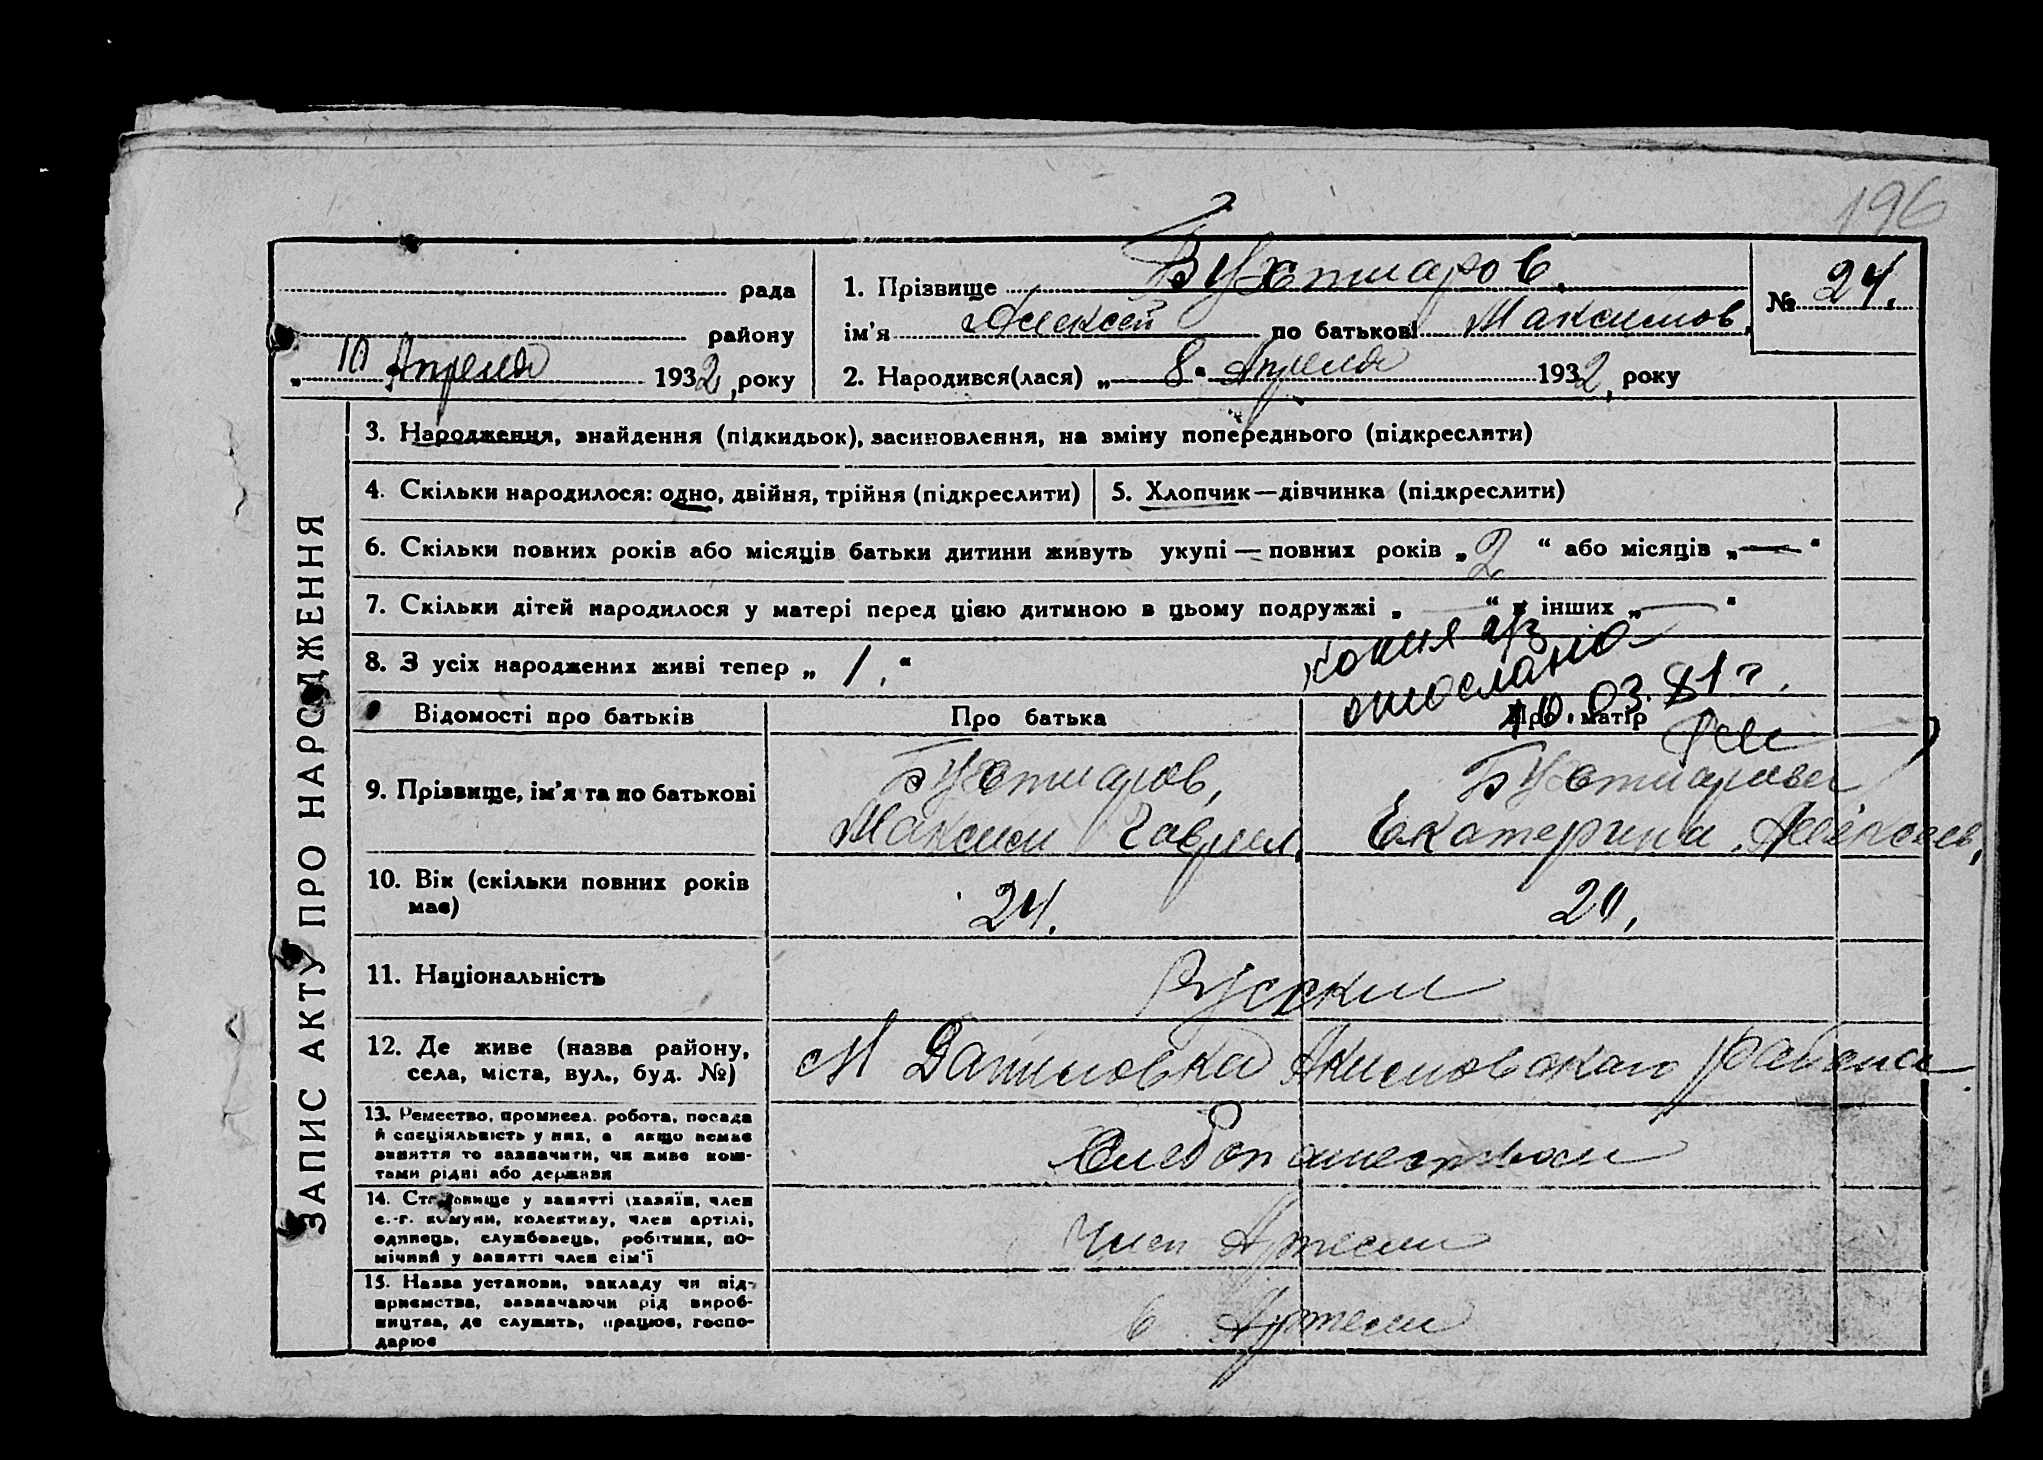 196
рада
району
„ 10 Апреля 1932, року
1. Прізвище Бухтиаров.
ім'я Алексей по батькові Максимов,
№ 24.
2. Народився(лася) „ 8 " Апреля 1932, року
ЗАПИС АКТУ ПРО НАРОДЖЕННЯ
3. Народження, знайдення (підкидьок), засиновлення, на зміну попереднього (підкреслити)
4. Скільки народилося: одно, двійня, трійня (підкреслити)
5. Хлопчик—дівчинка (підкреслити)
6. Скільки повних років або місяців батьки дитини живуть укупі — повних років „ 2 “ або місяців „ — “
7. Скільки дітей народилося у матері перед цією дитиною в цьому подружжі „ — “ в інших „ — “
8. З усіх народжених живі тепер „ 1. “
копия а/з
отослана
10.03.81 г.
Відомості про батьків
Про батька
Про матір
9. Прізвище, ім'я та по батькові
Бухтиаров,
Максим Гаврил.
Бухтиарова
Екатерина Алексеев,
10. Вік (скільки повних років
має)
24.
20,
11. Національність
Русские
12. Де живе (назва району,
села, міста, вул., буд. №)
М Даниловка Акимовскаго района
13. Ремество, промисел, робота, посада
й спеціяльність у них, а якщо немає
заняття то зазначити, чи живе кош-
тами рідні або держави
Хлебопашеством
14. Становище у занятті (хазяїн, член
с.-г. комуни, колективу, член артілі,
одинець, службовець, робітник, по-
мічний у занятті член сім'ї
Член Артели
15. Назва установи, закладу чи під-
приємства, зазначаючи рід вироб-
ництва, де служить, працює, госпо-
дарює
в Артели